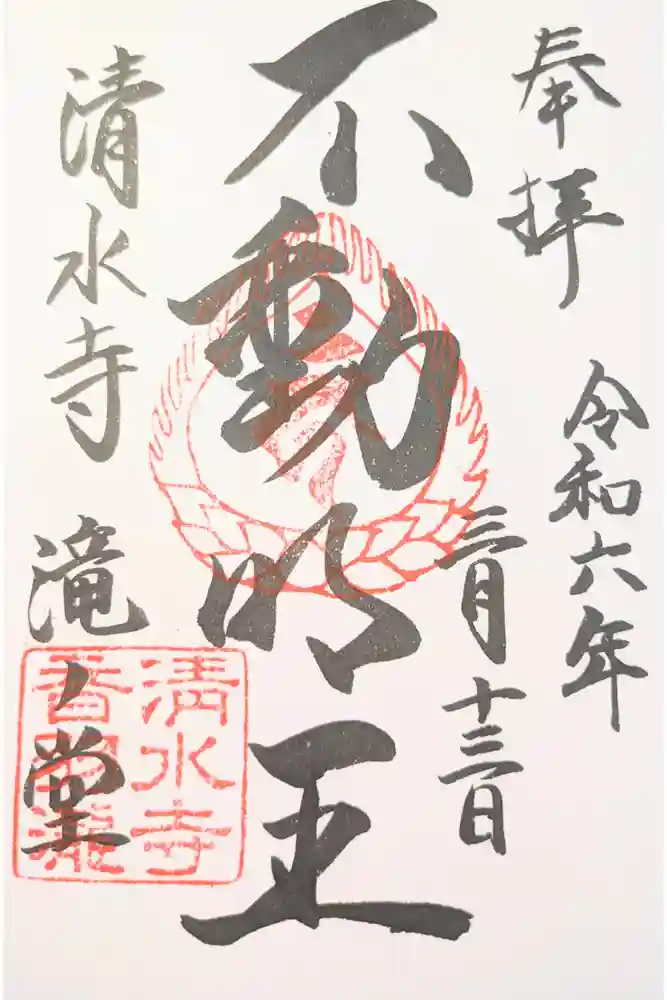 奉拝
令和六年
三月十三日
不動明王
清水寺
滝ノ堂
清水寺
音羽瀧